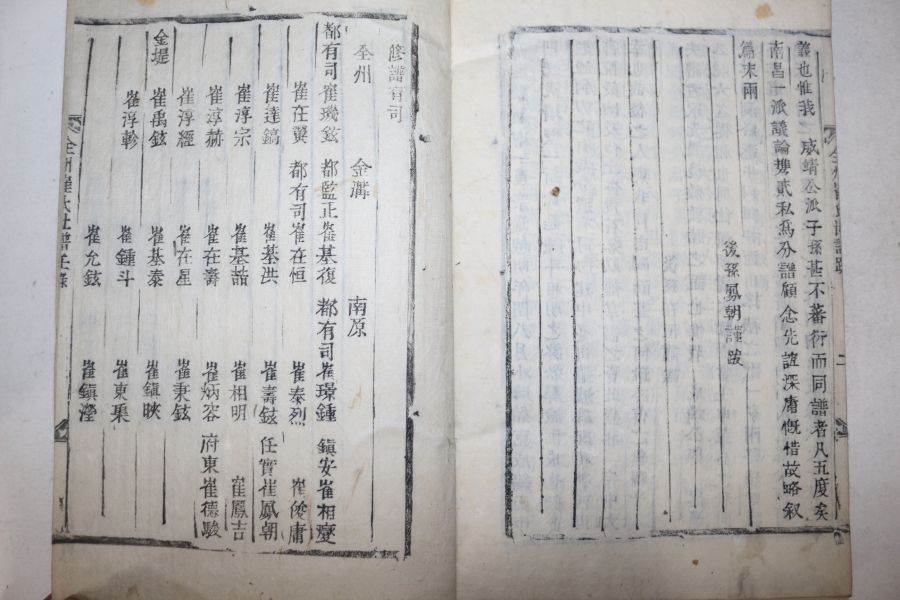 義也惟我二咸靖公派子孫甚不蕃衍而同譜者凡五度矣
南昌一派議論携貳私爲分譜顧念先誼深庸慨惜故略叙
爲末爾
後孫鳳朝謹跋
全州崔氏 譜跋
二
修譜有司
全州 金溝 南原
都有司崔璣鉉 都監正崔基復 都有司崔璟鍾 鎭安崔相燮
崔在翼 都有司崔在恒 崔泰烈 崔俊庸
崔達鎬 崔基洪 崔壽鉉 任實崔鳳朝
崔淳宗 崔基喆 崔相明 崔鳳吉
崔淳赫 崔在壽 崔炳容 府東崔德駿
崔淳經 崔在星 崔秉鉉
金堤 崔禹鉉 崔基泰 崔鎭映
崔淳軫 崔鍾斗 崔東
崔允鉉 崔鎭瀅
全州崔氏 譜任錄